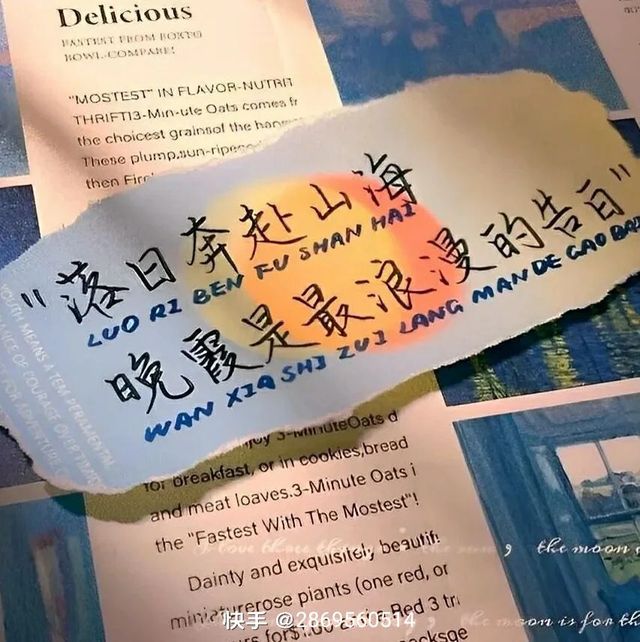 Delicious
FASTEST FROM BOX TO
BOWL-COMPARE!
"MOSTEST" IN FLAVOR-NUTRIT
THRIFT!3-Min-ute Oats comes fr
the choicest grainsof the
These plump,sun-ripened
then
"落日奔赴山海
LUO RI BEN FU SHAN HAI
晚霞是最浪漫的告白"
WAN XIA SHI ZUI LANG MAN DE GAO BAI
YOUTH MEANS A TEM-PERAMENTAL
OF COURAGE OVER TIMIDITY
3-MinuteOats d
for breakfast, or in cookies,bread
and meat loaves.3-Minute Oats i
the "Fastest With The Mostest"!
Dainty and exquisitely beautif
miniaturerose plants (one red, or
Red 3 tri
the moon
the moon is for th
快手 @2869560514